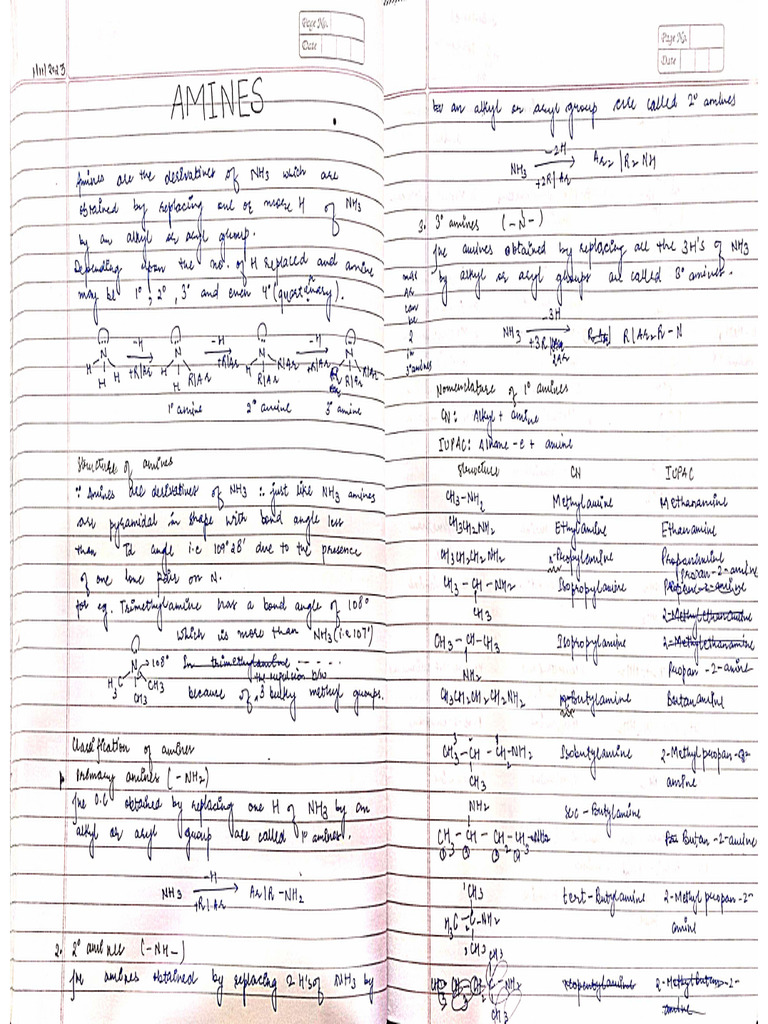 Page No.
Date
1/11/2023
AMINES
Amines are the derivatives of NH3 which are
obtained by replacing one or more H of NH3
by an alkyl or aryl group.
Depending upon the no. of H replaced and amine
may be 1°, 2°, 3° and even 4° (quarternary).
-H -H -H
+R|Ar +R|Ar +R|Ar
1° amine 2° amine 3° amine
Structure of amines
∵ Amines are derivatives of NH3 ∴ just like NH3 amines
are pyramidal in shape with bond angle less
than Td angle i.e 109°28' due to the presence
of one lone pair on N.
for eg. Trimethylamine has a bond angle of 108°
which is more than NH3 (i.e 107°)
108°
because of the repulsion b/w 3 bulky methyl groups.
Classification of amines
1. Primary amines (-NH2)
The O.C obtained by replacing one H of NH3 by an
alkyl or aryl group are called 1° amines.
NH3 -H +R|Ar → Ar|R-NH2
2. 2° amines (-NH-)
The amines obtained by replacing 2 H's of NH3 by
Page No.
Date
an alkyl or aryl group are called 2° amines
NH3 -2H +2R|Ar → Ar2|R2 NH
3. 3° amines (-N-)
The amines obtained by replacing all the 3H's of NH3
by alkyl or aryl groups are called 3° amines.
max Ar can be 2 in 3° amines
NH3 -3H +3R → R|Ar2R-N
Nomenclature of 1° amines
CN: Alkyl + amine
IUPAC: Alkane -e + amine
Structure CN IUPAC
CH3-NH2 Methylamine Methanamine
CH3CH2NH2 Ethylamine Ethanamine
CH3CH2CH2NH2 n-Propylamine Propanamine
CH3-CH-NH2 Isopropylamine Propan-2-amine
CH3
CH3-CH-CH3 Isopropylamine
NH2 Propan-2-amine
CH3CH2CH2CH2NH2 n-Butylamine Butanamine
CH3-CH-CH2-NH2 Isobutylamine 2-Methylpropan-
CH3 amine
NH2 sec-Butylamine
CH3-CH-CH2-CH3 Butan-2-amine
CH3 tert-Butylamine 2-Methylpropan-2-
H3C-C-NH2 amine
CH3
CH3